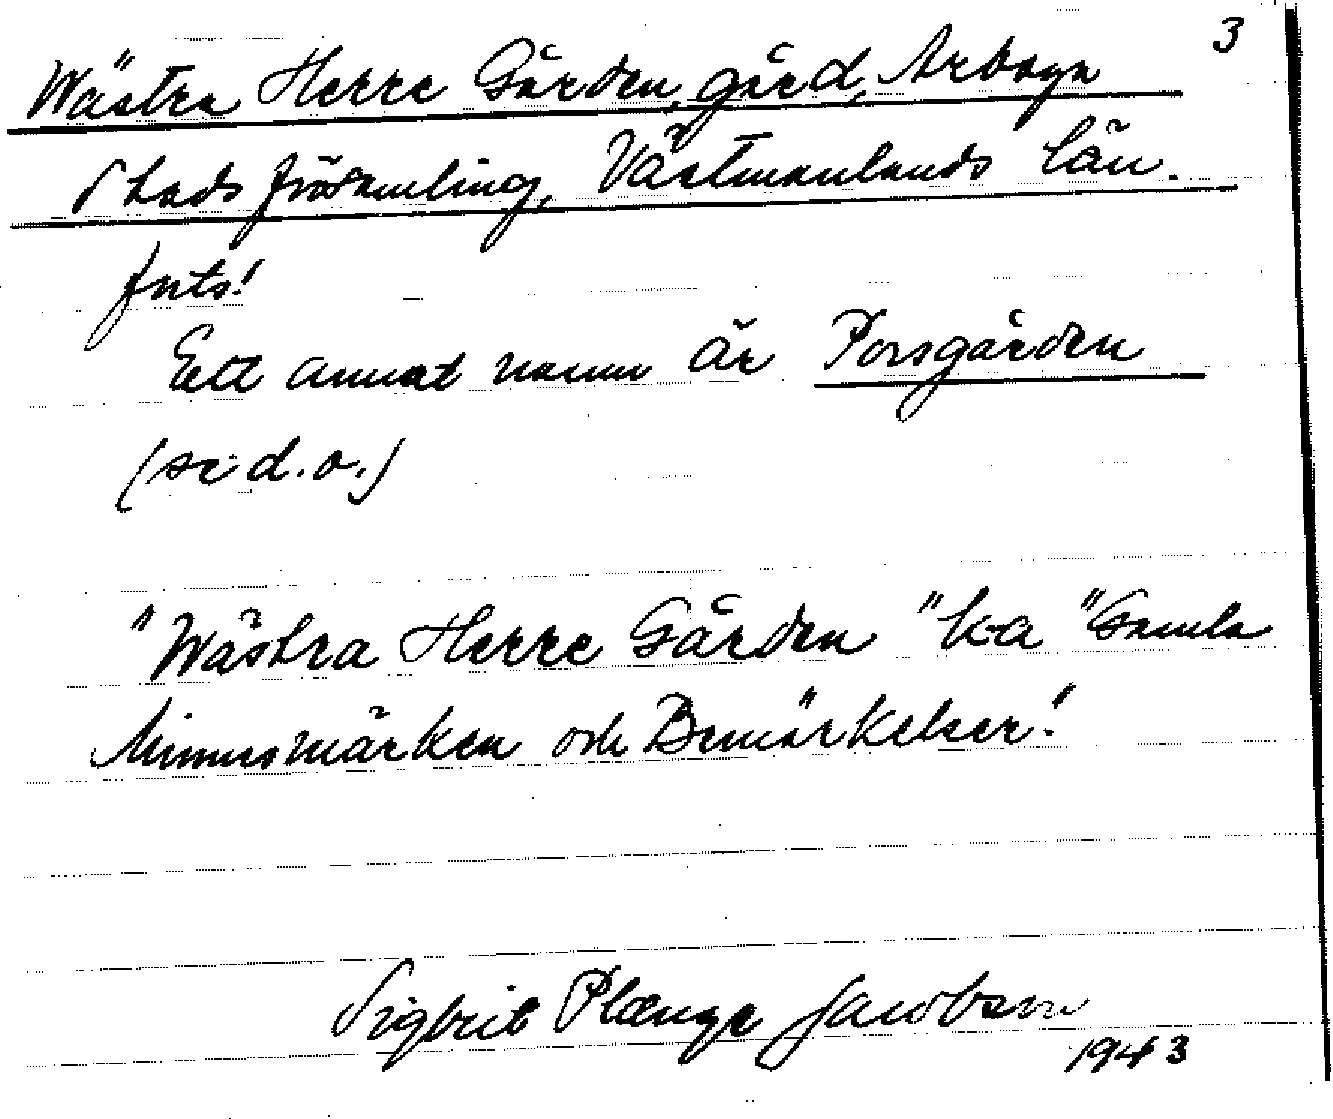 3
Wästra Herre Gården, gård, Arboga
Stadsförsamling, Västmanlands län.
forts!
Ett annat namn är Porsgården
(se d.o.)
"Wästra Herre Gården" k-a "Gamla
Minnesmärken och Bemärkelser."
Sigbrit Plænge Jacobson
1943